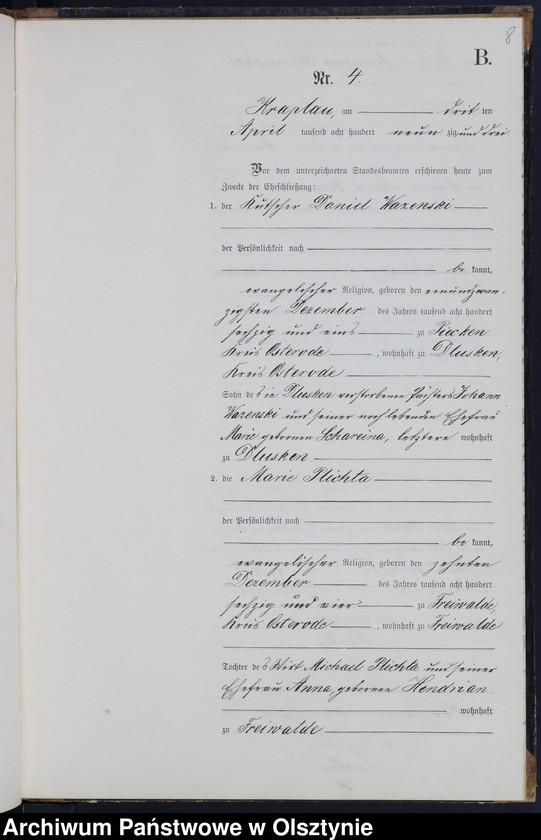 8
B.
Nr. 4.
Kraplau, am dritten
April tausend acht hundert neunzig und drei
Vor dem unterzeichneten Standesbeamten erschienen heute zum
Zwecke der Eheschließung:
1. der Kutscher Daniel Wazenski
der Persönlichkeit nach
bekannt,
evangelischer Religion, geboren den einundzwan-
zigsten Dezember des Jahres tausend acht hundert
sechzig und eins zu Peecken
Kreis Osterode, wohnhaft zu Dlusken,
Kreis Osterode
Sohn des in Dlusken verstorbenen Johann
Wazenski und seiner noch lebenden Ehefrau
Marie geborenen Schareina, letztere wohnhaft
zu Dlusken
2. die Marie Plichta
der Persönlichkeit nach
bekannt,
evangelischer Religion, geboren den zehnten
Dezember des Jahres tausend acht hundert
sechzig und vier zu Freiwalde,
Kreis Osterode, wohnhaft zu Freiwalde
Tochter des Wirt Michael Plichta und seiner
Ehefrau Anna, geborene Hendrian
wohnhaft
zu Freiwalde
Archiwum Państwowe w Olsztynie